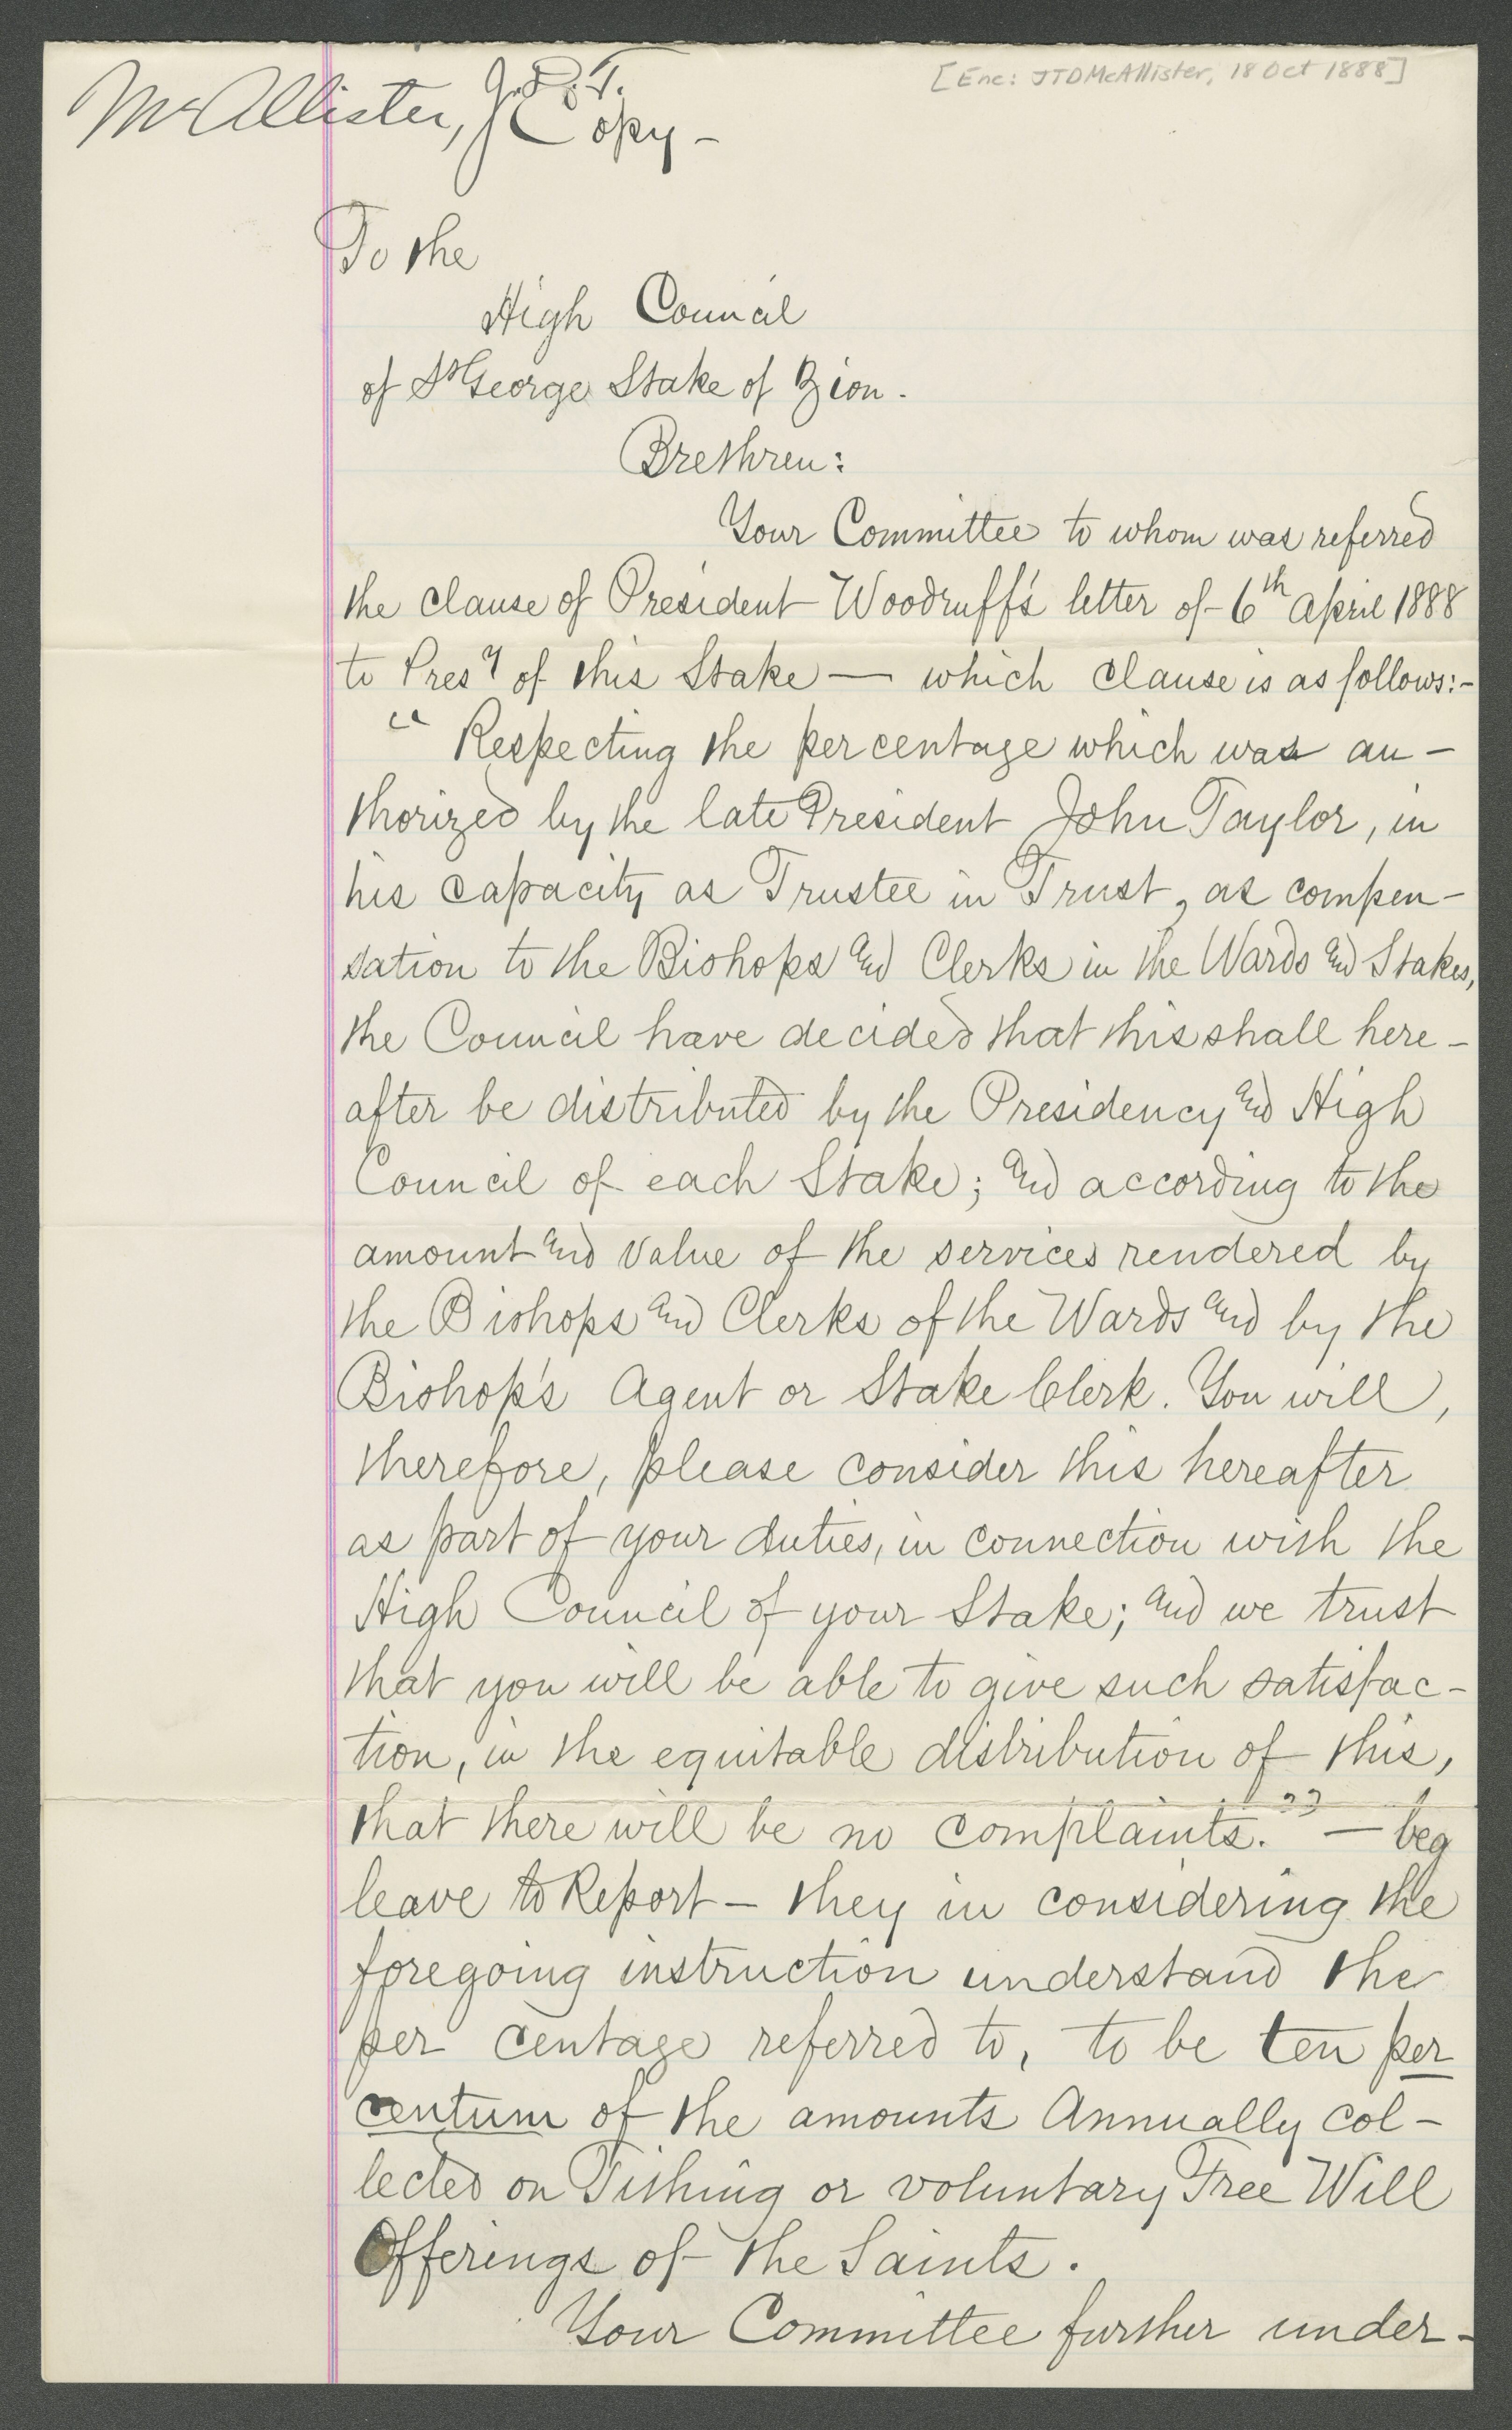 [Enc: JTDMcAllister, 18 Oct 1888]
McAllister, J.D.T.
Copy -
To the
High Council
of St George Stake of Zion.
Brethren:
Your Committee to whom was referred
the clause of President Woodruff's letter of 6th April 1888
to Presy of this Stake — which clause is as follows:-
"Respecting the percentage which was au-
thorized by the late President John Taylor, in
his capacity as Trustee in Trust, as compen-
sation to the Bishops and Clerks in the Wards and Stakes,
the Council have decided that this shall here-
after be distributed by the Presidency and High
Council of each Stake; and according to the
amount and value of the services rendered by
the Bishops and Clerks of the Wards and by the
Bishop's Agent or Stake Clerk. You will,
therefore, please consider this hereafter
as part of your duties, in connection with the
High Council of your Stake; and we trust
that you will be able to give such satisfac-
tion, in the equitable distribution of this,
that there will be no complaints." — beg
leave to Report - they in considering the
foregoing instruction understand the
per centage referred to, to be ten per
centum of the amounts Annually col-
lected on Tithing or voluntary Free Will
Offerings of the Saints.
Your Committee further under-